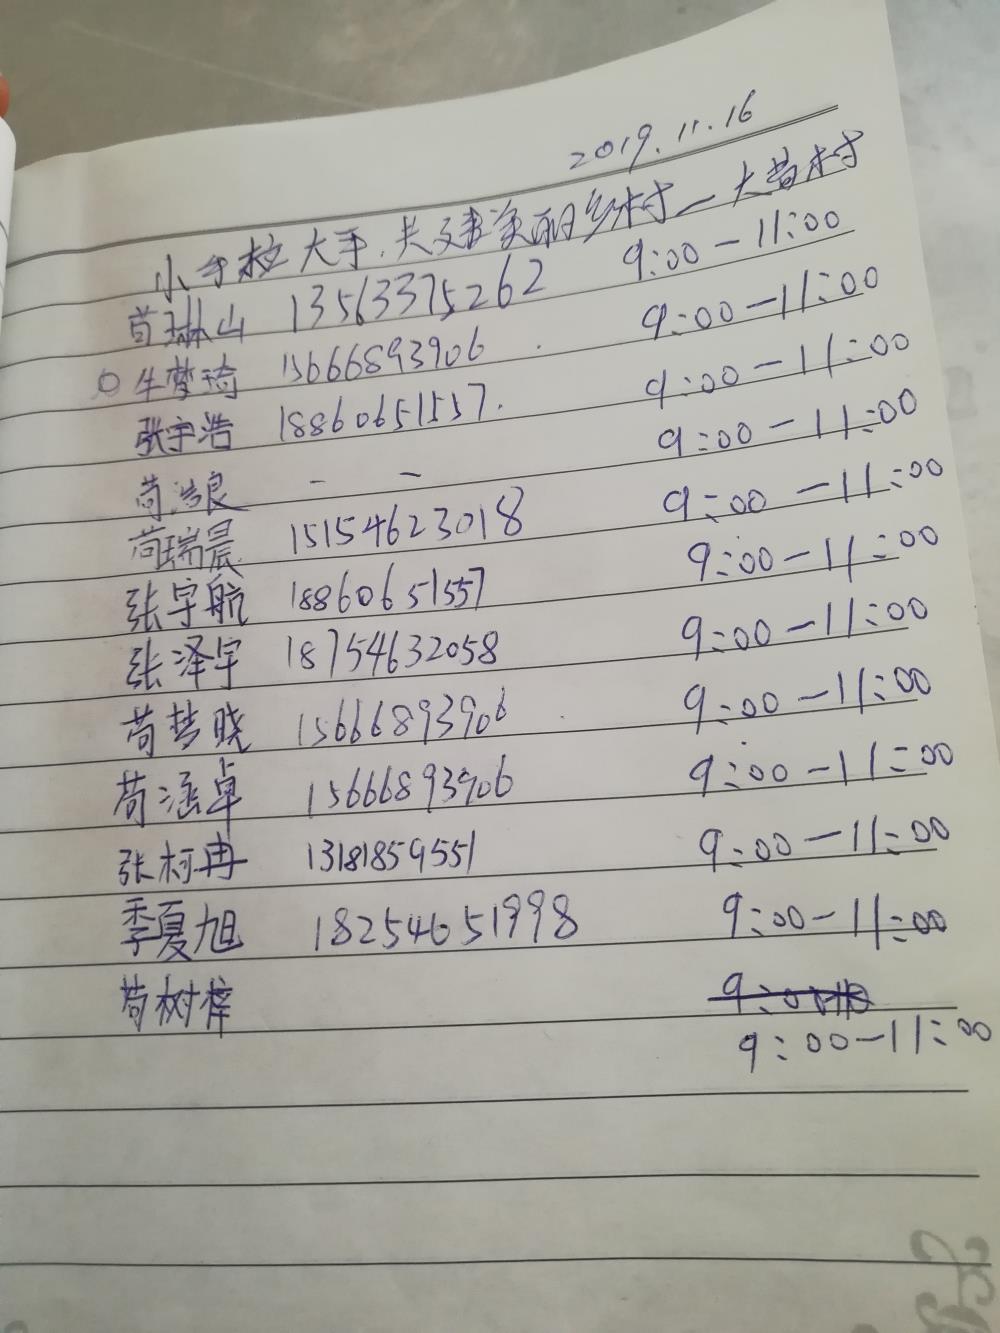 2019.11.16
小手拉大手,共建美丽乡村—大苟村
苟琳山 13563375262 9:00-11:00
牛梦琦 15666893906 9:00-11:00
张宇浩 18860651557. 9:00-11:00
苟浩良 - - 9:00-11:00
苟瑞晨 15154623018 9:00-11:00
张宇航 18860651557 9:00-11:00
张泽宇 18754632058 9:00-11:00
苟梦晓 15666893906 9:00-11:00
苟涵卓 15666893906 9:00-11:00
张柯冉 13181859551 9:00-11:00
季夏旭 18254651998 9:00-11:00
苟树梓
9:00-11:00